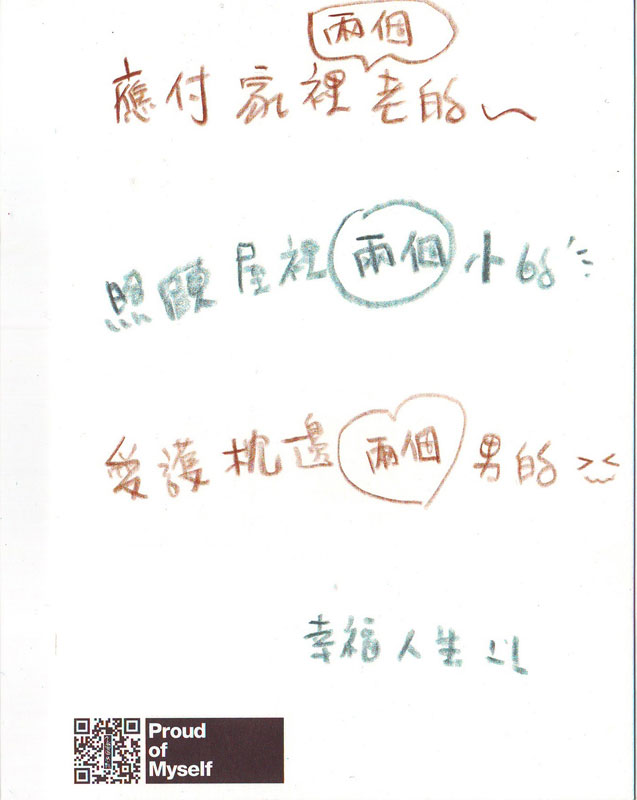 應付家裡兩個老的~
照顧屋裡兩個小的
愛護枕邊兩個男的 ><
幸福人生
Proud
of
Myself